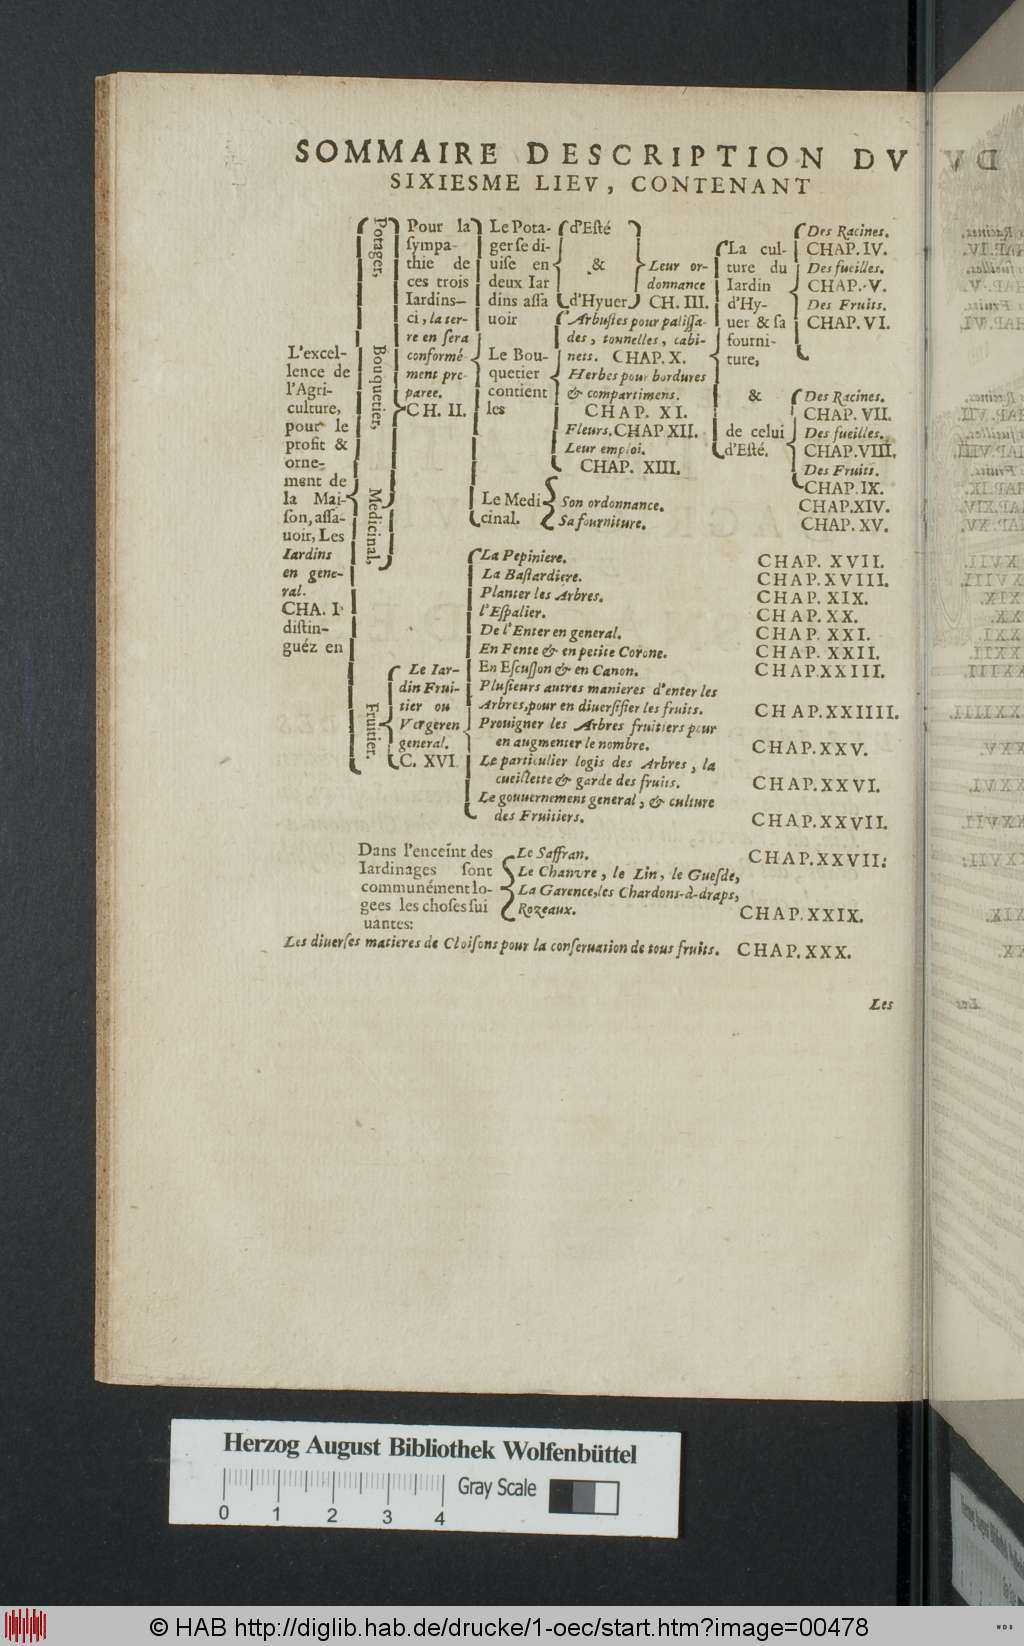 SOMMAIRE DESCRIPTION DV
SIXIESME LIEV, CONTENANT
L'excel-
lence de
l'Agri-
culture,
pour le
profit &
orne-
ment de
la Mai-
ſon, aſſa-
uoir, Les
Iardins
en gene-
ral.
CHA. I
diſtin-
guéz en
Potager,
Bouquetier,
Medicinal,
Fruitier.
Pour la
ſympa-
thie de
ces trois
Iardins-
ci, la ter-
re en ſera
conformé-
ment pre-
paree.
CH. II.
Le Pota-
ger ſe di-
uiſe en
deux Iar
dins aſſa
uoir
d'Eſté
&
d'Hyuer
Leur or-
donnance
CH. III.
La cul-
ture du
Iardin
d'Hy-
uer & ſa
fourni-
ture,
&
de celui
d'Eſté.
Des Racines.
CHAP. IV.
Des fueilles.
CHAP. V.
Des Fruits.
CHAP. VI.
Des Racines.
CHAP. VII.
Des fueilles.
CHAP. VIII.
Des Fruits.
CHAP. IX.
Le Bou-
quetier
contient
les
Arbuſtes pour paliſſa-
des, tounelles, cabi-
nets. CHAP. X.
Herbes pour bordures
& compartimens.
CHAP. XI.
Fleurs. CHAP XII.
Leur emploi.
CHAP. XIII.
Le Medi
cinal.
Son ordonnance. CHAP. XIV.
Sa fourniture. CHAP. XV.
Le Iar-
din Frui-
tier ou
Verger en
general.
C. XVI
La Pepiniere. CHAP. XVII.
La Baſtardiere. CHAP. XVIII.
Planter les Arbres. CHAP. XIX.
l'Eſpalier. CHAP. XX.
De l'Enter en general. CHAP. XXI.
En Fente & en petite Corone. CHAP. XXII.
En Eſcuſſon & en Canon. CHAP. XXIII.
Pluſieurs autres manieres d'enter les
Arbres, pour en diuerſifier les fruits. CHAP. XXIIII.
Prouigner les Arbres fruitiers pour
en augmenter le nombre. CHAP. XXV.
Le particulier logis des Arbres, la
cueillette & garde des fruits. CHAP. XXVI.
Le gouuernement general, & culture
des Fruitiers. CHAP. XXVII.
Dans l'enceint des
Iardinages ſont
communément lo-
gees les choſes ſui
uantes:
Le Saffran. CHAP. XXVII:
Le Chanvre, le Lin, le Gueſde,
La Garence, les Chardons-à-draps,
Rozeaux. CHAP. XXIX.
Les diuerſes matieres de Cloiſons pour la conſeruation de tous fruits. CHAP. XXX.
Les
Herzog August Bibliothek Wolfenbüttel
Gray Scale
0 1 2 3 4
© HAB http://diglib.hab.de/drucke/1-oec/start.htm?image=00478